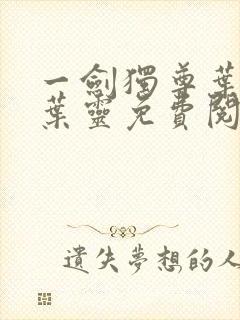 一劍獨尊葉
葉靈免費閱
遺失夢想的人